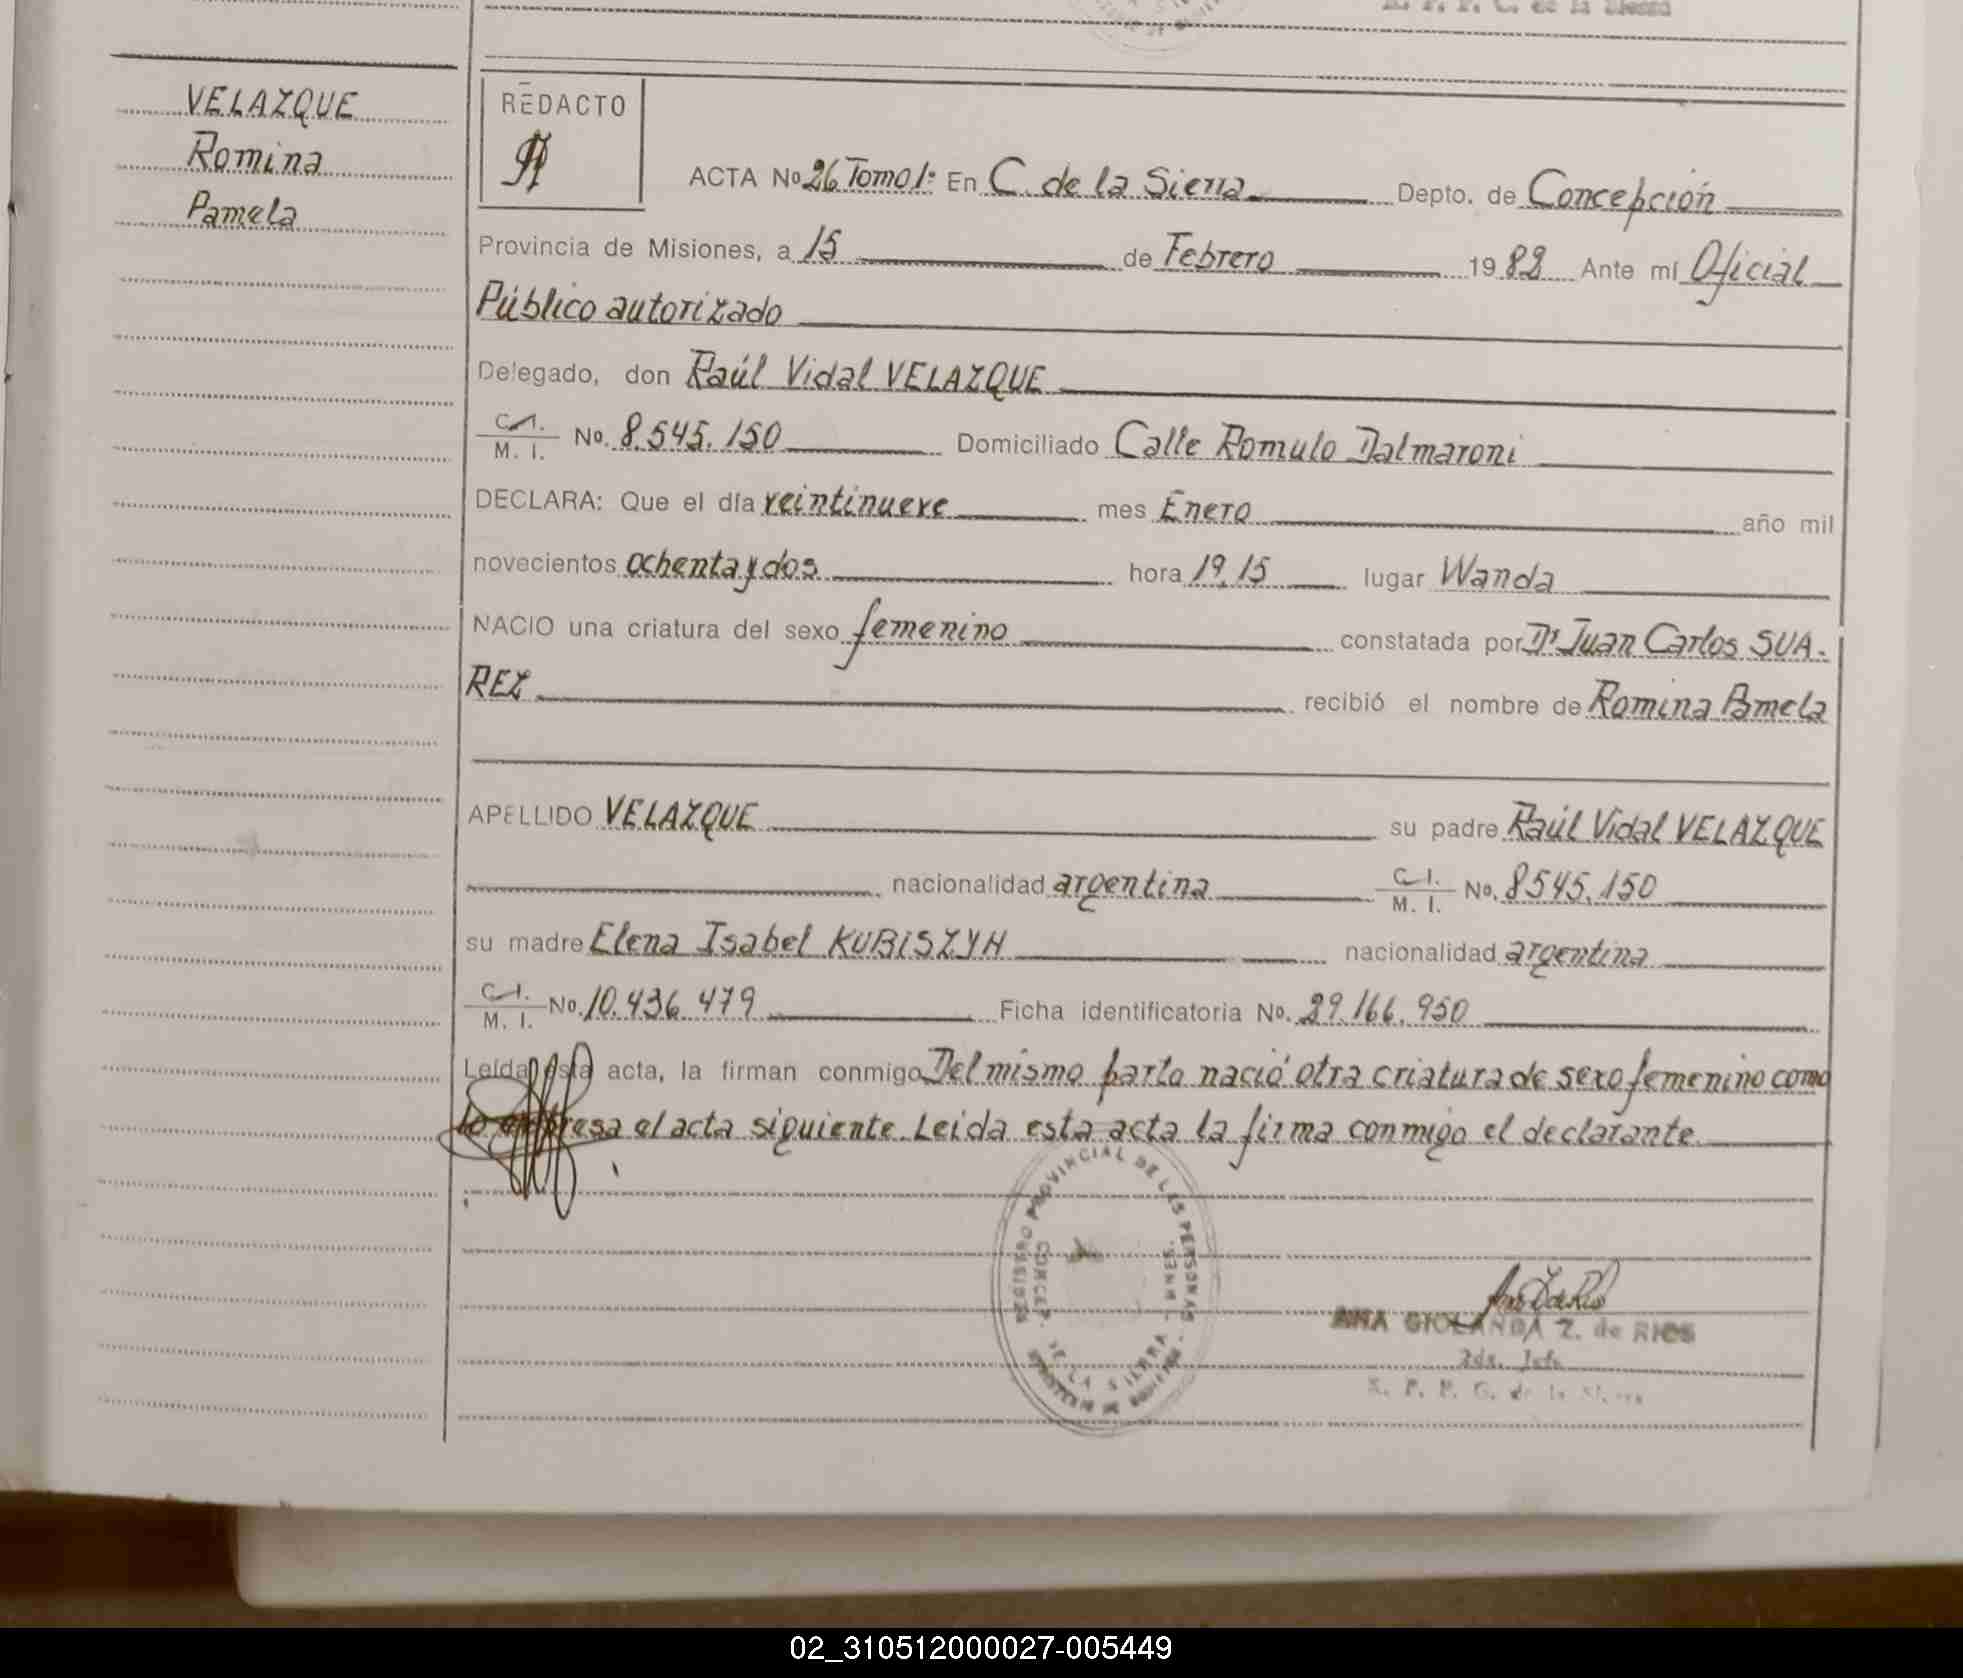 R. P. P. C. de la Sierra
VELAZQUE
Romina
Pamela
REDACTO
ACTA No 26 Tomo 1º En C. de la Sierra Depto. de Concepción
Provincia de Misiones, a 15 de Febrero 1982 Ante mí Oficial
Público autorizado
Delegado, don Raúl Vidal VELAZQUE
C. I. M. I. No. 8.545.150 Domiciliado Calle Romulo Dalmaroni
DECLARA: Que el día veintinueve mes Enero año mil
novecientos ochenta y dos hora 19,15 lugar Wanda
NACIO una criatura del sexo femenino constatada por Dr Juan Carlos SUA-
REZ recibió el nombre de Romina Pamela
APELLIDO VELAZQUE su padre Raúl Vidal VELAZQUE
nacionalidad argentina C. I. M. I. No. 8545.150
su madre Elena Isabel KUBISZYN nacionalidad argentina
C. I. M. I. No. 10.436.479 Ficha identificatoria No. 29.166.950
Leída esta acta, la firman conmigo Del mismo parto nació otra criatura de sexo femenino como
lo expresa el acta siguiente. Leida esta acta la firma conmigo el declarante.
REGISTRO PROVINCIAL DE LAS PERSONAS
DE LA SIERRA
ANA GIOLANDA Z. de RIOS
R. P. P. C. de la Sierra
02_310512000027-005449